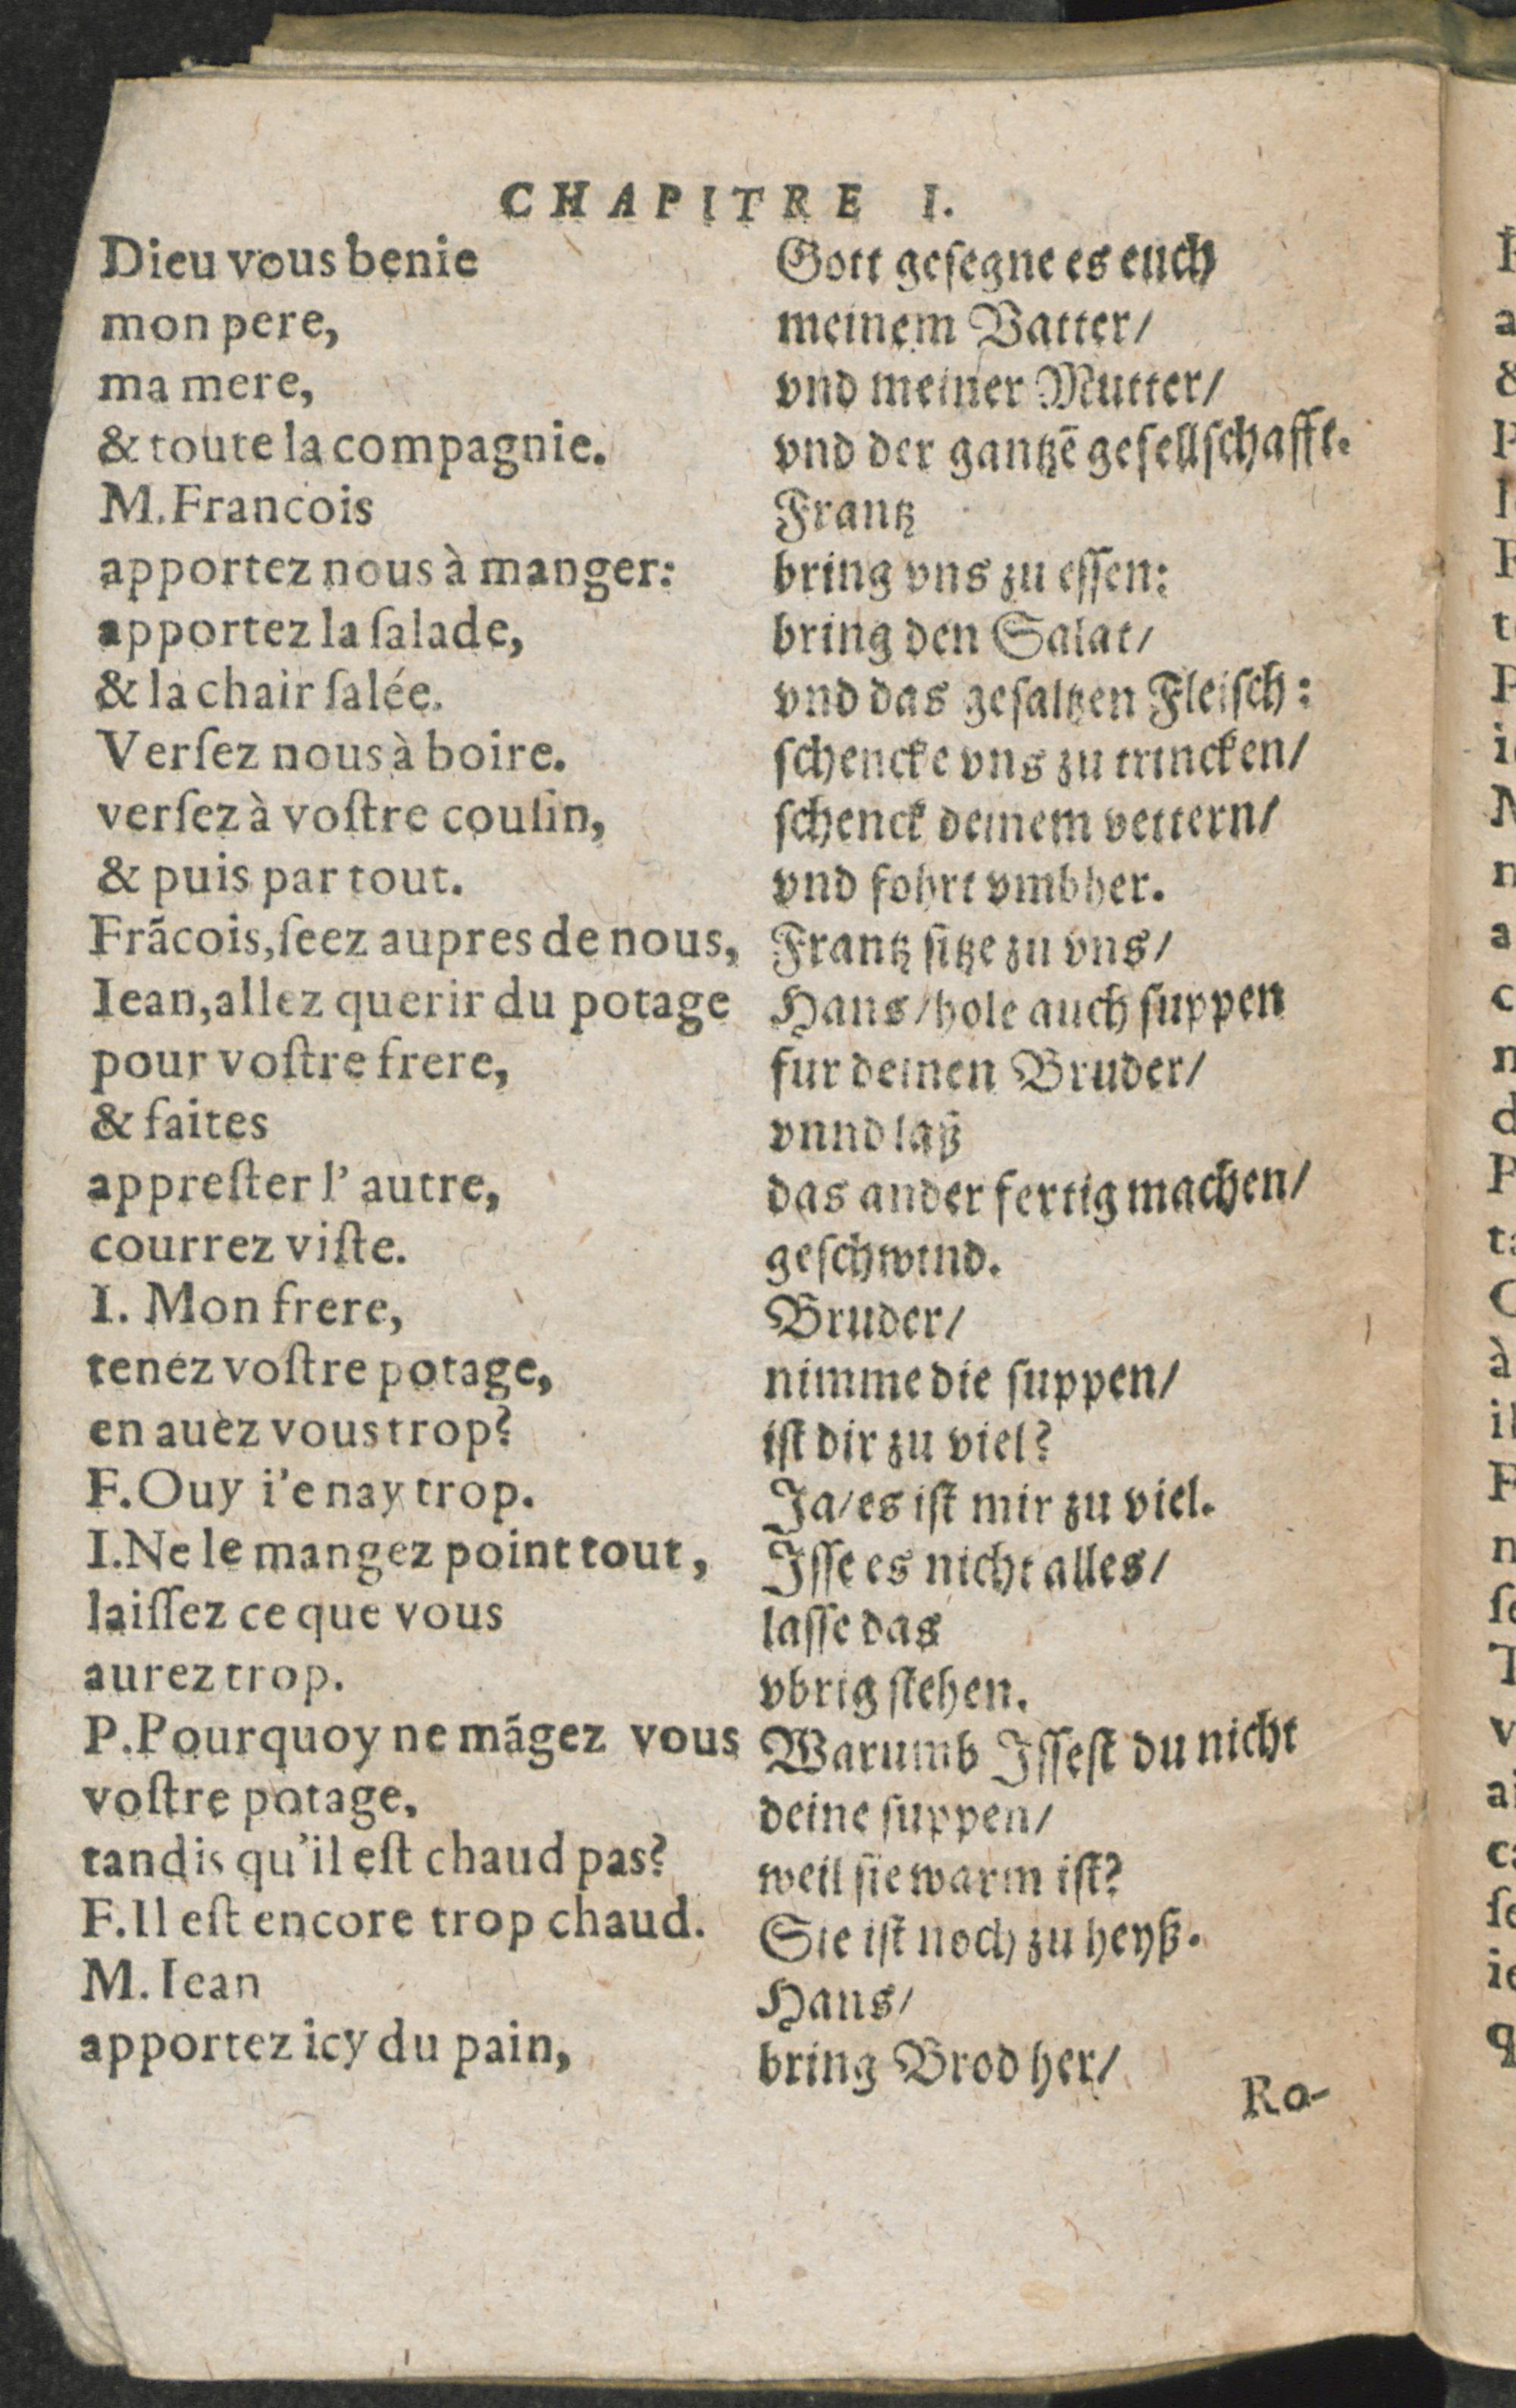 CHAPITRE I.
Dieu vous benie
mon pere,
ma mere,
& toute la compagnie.
M. Francois
apportez nous à manger:
apportez la ſalade,
& la chair ſalée.
Verſez nous à boire.
verſez à voſtre couſin,
& puis par tout.
Frãcois, ſeez aupres de nous,
Iean, allez querir du potage
pour voſtre frere,
& faites
appreſter l' autre,
courrez viſte.
I. Mon frere,
tenez voſtre potage,
en auez vous trop?
F. Ouy i'en ay trop.
I. Ne le mangez point tout,
laiſſez ce que vous
aurez trop.
P. Pourquoy ne mãgez vous
voſtre potage,
tandis qu'il eſt chaud pas?
F. Il eſt encore trop chaud.
M. Iean
apportez icy du pain,
Gott geſegne es euch
meinem Vatter/
vnd meiner Mutter/
vnd der gantzẽ geſellſchafft.
Frantz
bring vns zu eſſen:
bring den Salat/
vnd das geſaltzen Fleiſch:
ſchencke vns zu trincken/
ſchenck deinem vettern/
vnd fohrt vmbher.
Frantz ſitze zu vns/
Hans/hole auch ſuppen
fur deinen Bruder/
vnnd laß
das ander fertig machen/
geſchwind.
Bruder/
nimme die ſuppen/
iſt dir zu viel?
Ja/es iſt mir zu viel.
Iſſe es nicht alles/
laſſe das
vbrig ſtehen.
Warumb Iſſeſt du nicht
deine ſuppen/
weil ſie warm iſt?
Sie iſt noch zu heyß.
Hans/
bring Brod her/
Ra-